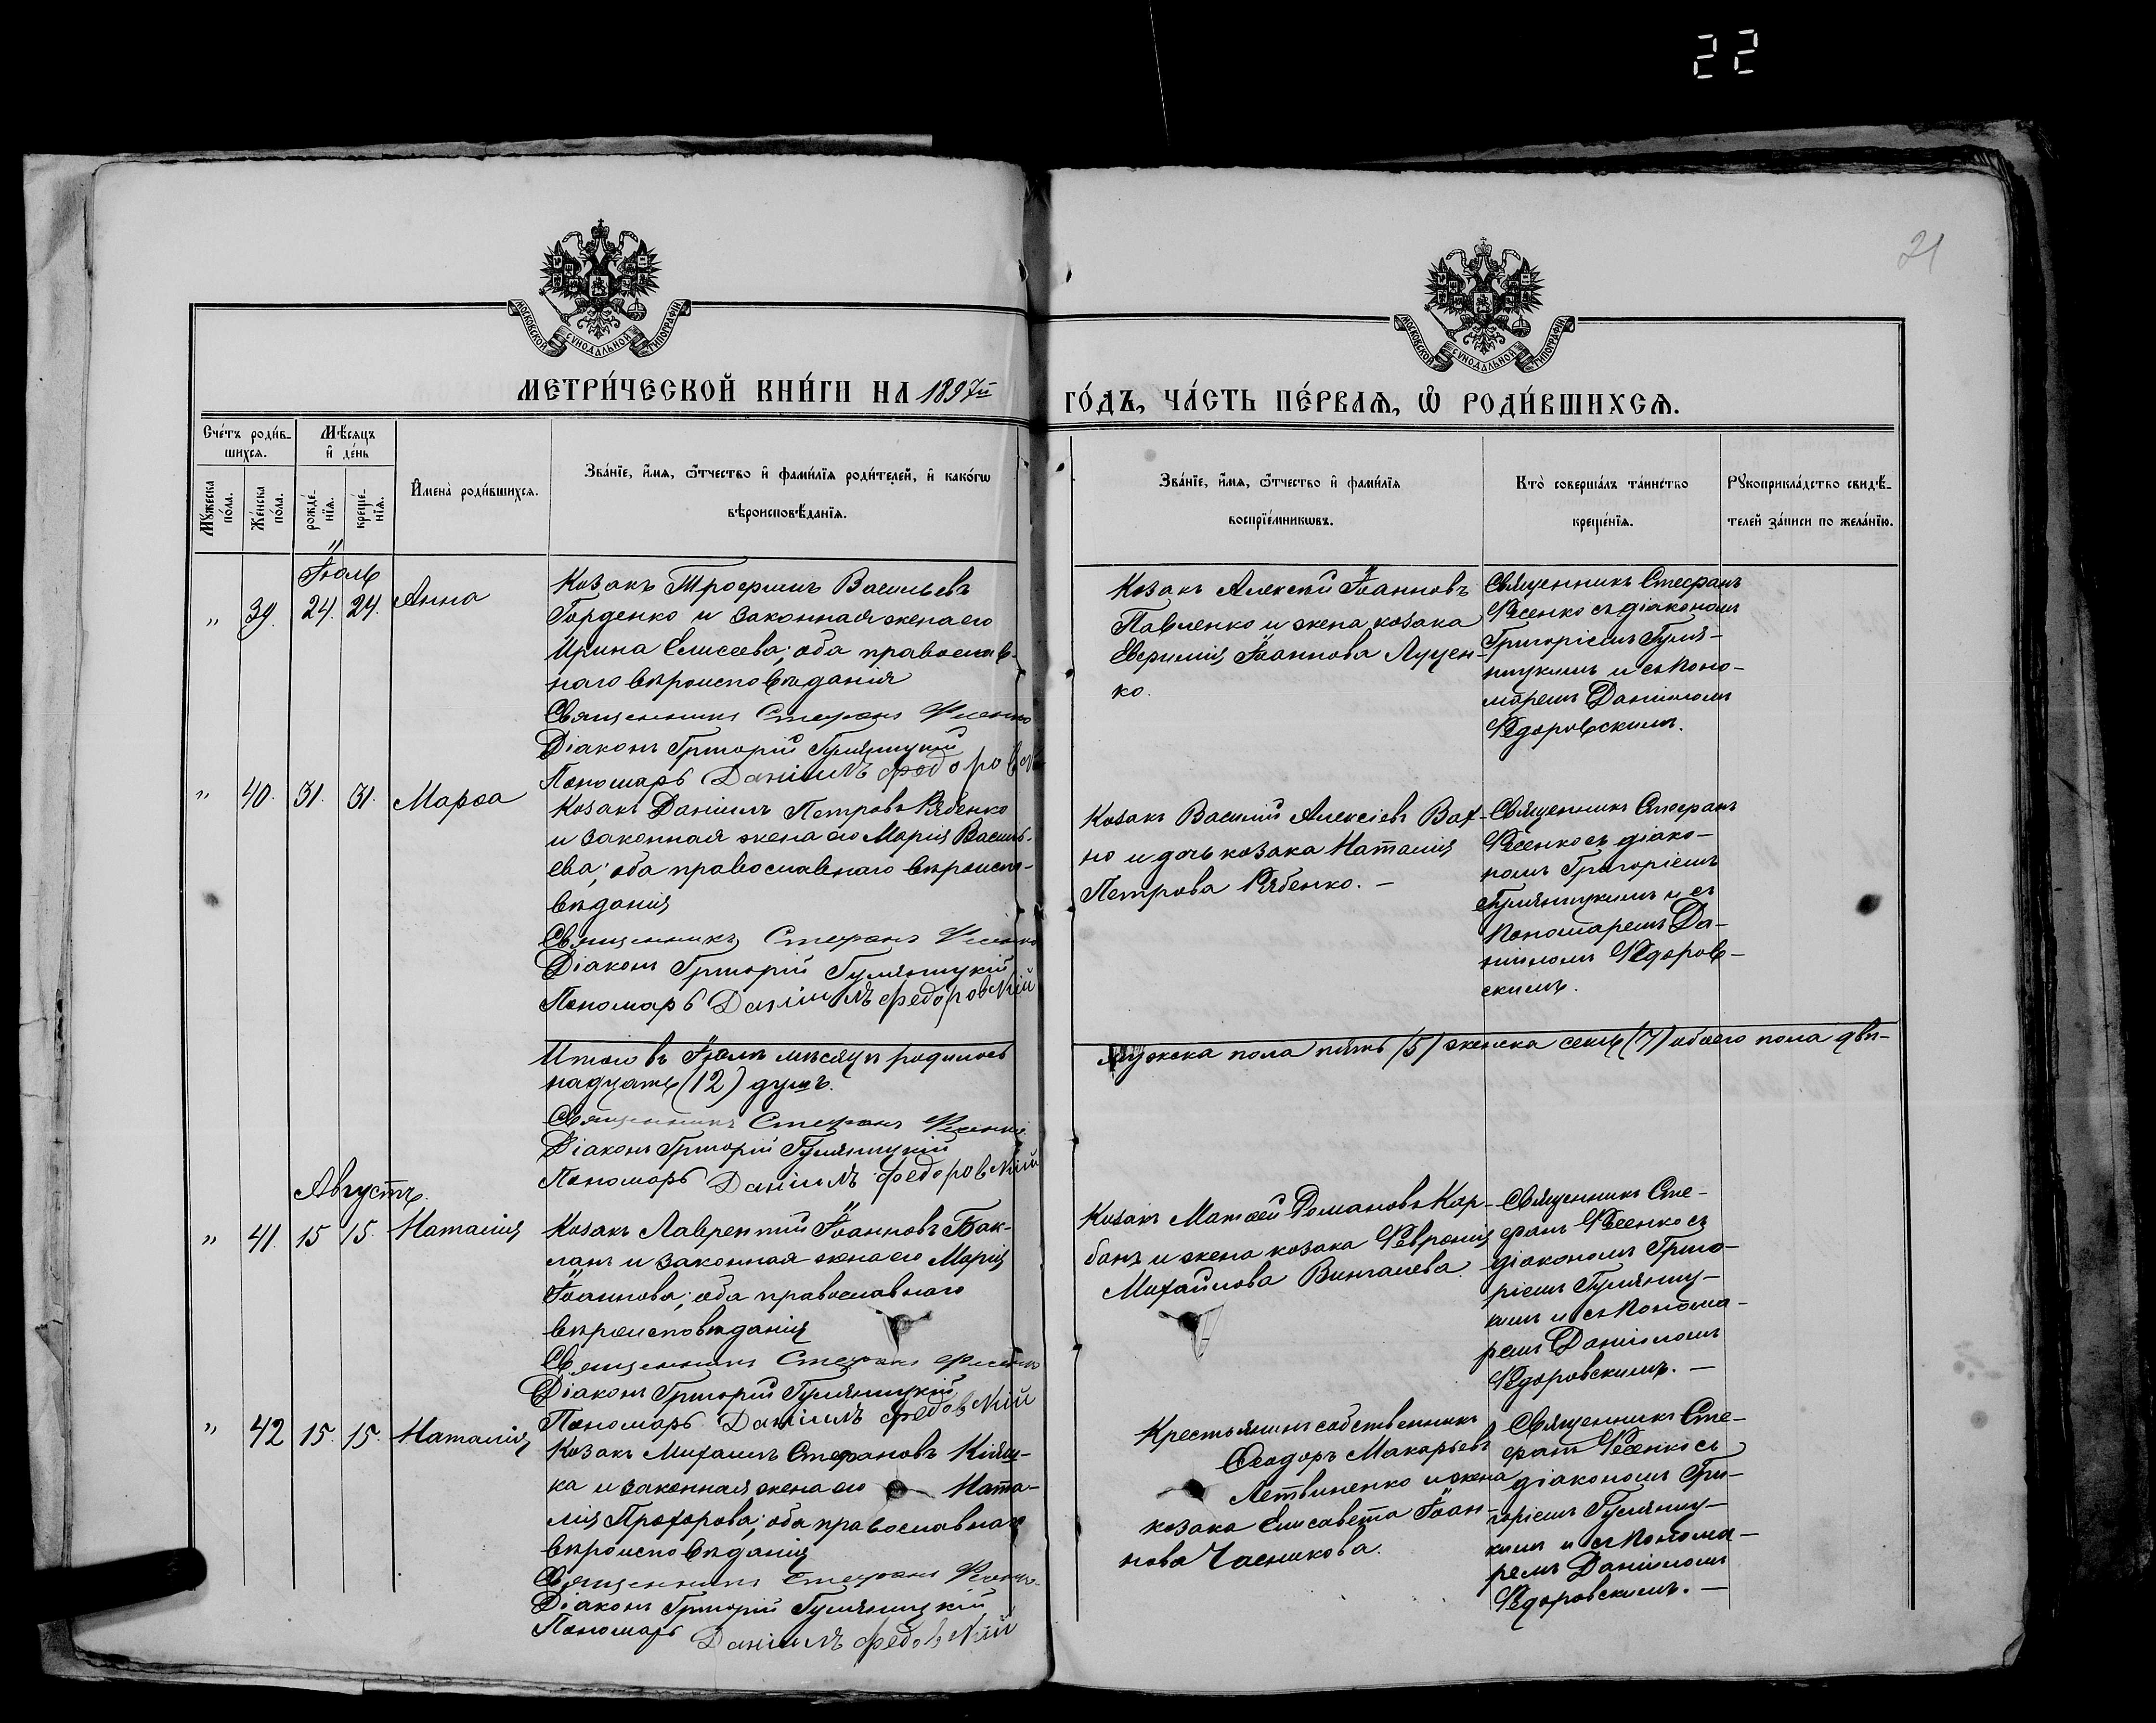 22
21
МОСКОВСКОЙ СѴНОДАЛЬНОЙ ТИПОГРАФІИ
МОСКОВСКОЙ СѴНОДАЛЬНОЙ ТИПОГРАФІИ
МЕТРИ́ЧЕСКОЙ КНИ́ГИ НА 1897й
ГО́ДЪ, ЧА́СТЬ ПЕ́РВАѦ, Ѽ РОДИ́ВШИХСѦ.
Сче́тъ роди́в-
шихсѧ.
Мѣ́сѧцъ
и҆ де́нь
Мꙋ́жеска
по́ла.
Же́нска
по́ла.
рожде́-
нїѧ.
креще́-
нїѧ.
И҆мена̀ роди́вшихсѧ.
Зва́нїе, и҆́мѧ, ѻ҆́тчество и҆ фами́лїѧ роди́телей, и҆ како́гѡ
вѣроисповѣ́данїѧ.
Зва́нїе, и҆́мѧ, ѻ҆́тчество и҆ фами́лїѧ
воспрїе́мникѡвъ.
Кто̀ соверша́лъ та́инство
креще́нїѧ.
Рꙋкоприкла́дство свидѣ́-
телей за́писи по жела́нїю.
Іюль
" 39. 24. 24. Анна
Козакъ Трофимъ Васильевъ
Горденко и законная жена его
Ирина Елисеева; оба православ-
наго вѣроисповѣданія
Священникъ Стефанъ Фесенко
Діаконъ Григорій Гуляницкій
Пономарь Даніилъ Федоров
Козакъ Алексій Іоанновъ
Павленко и жена козака
Евфимія Іоаннова Луцен-
ко.
Священникъ Стефанъ
Фесенко съ діакономъ
Григоріемъ Гуля-
ницкимъ и съ поно-
маремъ Даніиломъ
Федоровскимъ.
" 40. 31. 31. Марѳа
Козакъ Даніилъ Петровъ Рябенко
и законная жена его Марія Василь-
ева; оба православнаго вѣроиспо-
вѣданія
Священникъ Стефанъ Фесенко
Діаконъ Григорій Гуляницкій
Пономарь Даніилъ Федоровскій
Козакъ Василій Алексіевъ Вах-
но и дочь козака Наталія
Петрова Рябенко. —
Священникъ Стефанъ
Фесенко съ діако-
номъ Григоріемъ
Гуляницкимъ и съ
пономаремъ Да-
ніиломъ Федоров-
скимъ.
Итого въ Іюлѣ мѣсяцѣ родилось
мужеска пола пять (5) женска семь (7) обоего пола двѣ-
надцать (12) душъ.
Священникъ Стефанъ Фесенко
Діаконъ Григорій Гуляницкій
Пономарь Даніилъ Федоровскій
Августъ.
" 41. 15 15. Наталія
Козакъ Лаврентій Іоанновъ Бак-
ланъ и законная жена его Марія
Іоаннова; оба православнаго
вѣроисповѣданія
Священникъ Стефанъ Фесенко
Діаконъ Григорій Гуляницкій
Пономарь Даніилъ Федовскій
Козакъ Матѳей Романовъ Кар-
банъ и жена козака Февронія
Михайлова
Священникъ Сте-
фанъ Фесенко съ
діакономъ Григо-
ріемъ Гуляниц-
кимъ и съ понома-
ремъ Даніиломъ
Федоровскимъ. —
" 42 15. 15. Наталія
Козакъ Михаилъ Стефановъ Кіяш-
ка и законная жена его Ната-
лія Прохорова; оба православнаго
вѣроисповѣданія
Священникъ Стефанъ Фесенко
Діаконъ Григорій Гуляницкій
Пономарь Даніилъ Федовскій
Крестьянинъ собственникъ
Ѳеодоръ Макарьевъ
Летвиненко и жена
козака Елисавета Іоан-
нова Часникова.
Священникъ Сте-
фанъ Фесенко съ
діакономъ Гри-
горіемъ Гуляниц-
кимъ и съ понома-
ремъ Даніиломъ
Федоровскимъ. —